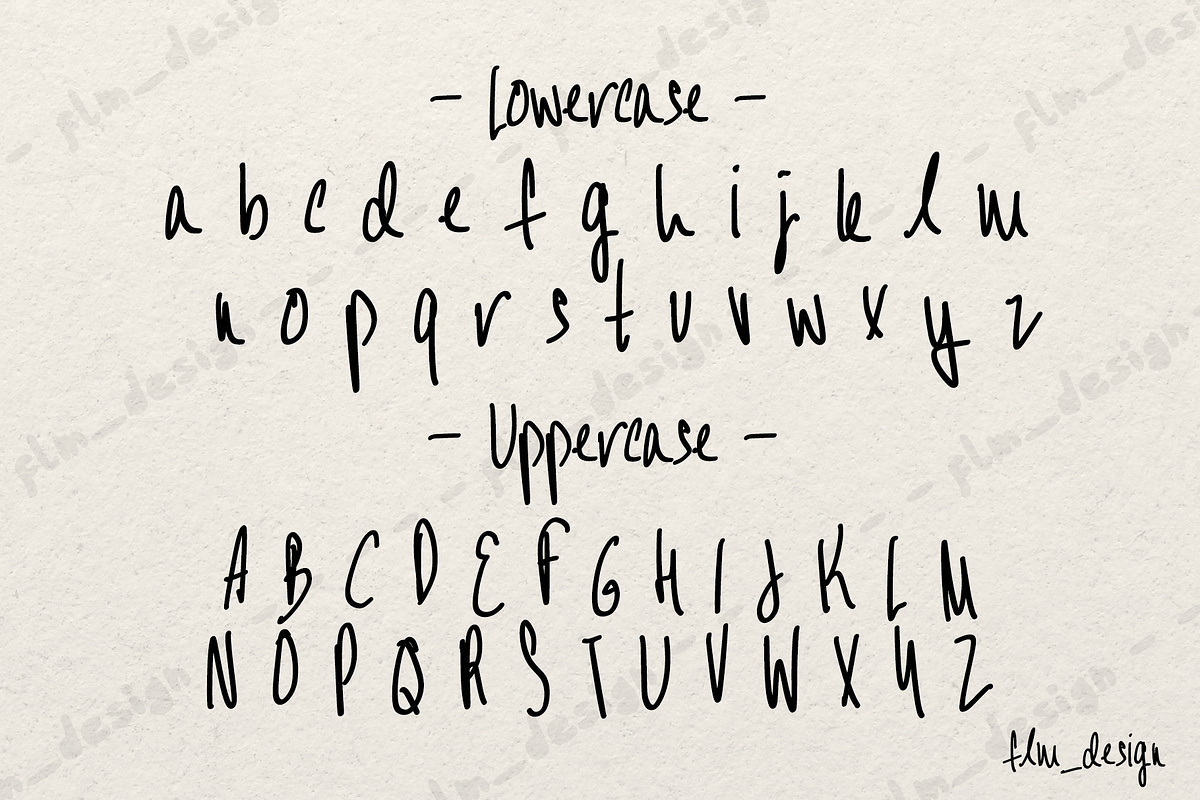 - Lowercase -
a b c d e f g h i j k l m
n o p q r s t u v w x y z
- Uppercase -
A B C D E F G H I J K L M
N O P Q R S T U V W X Y Z
flm_design